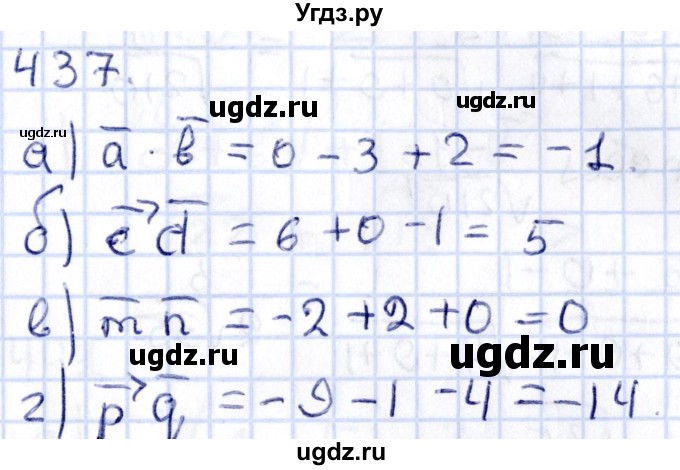 Угдз.ру
437.
ugdz.ru
ugdz.ru
ugdz.ru
а) a̅ · b̅ = 0 - 3 + 2 = -1.
б) c⃗ d̅ = 6 + 0 - 1 = 5
в) m̅ n̅ = -2 + 2 + 0 = 0
ugdz.ru
ugdz.ru
г) p⃗ q̅ = -9 - 1 - 4 = -14.
ugdz.ru
ugdz.ru